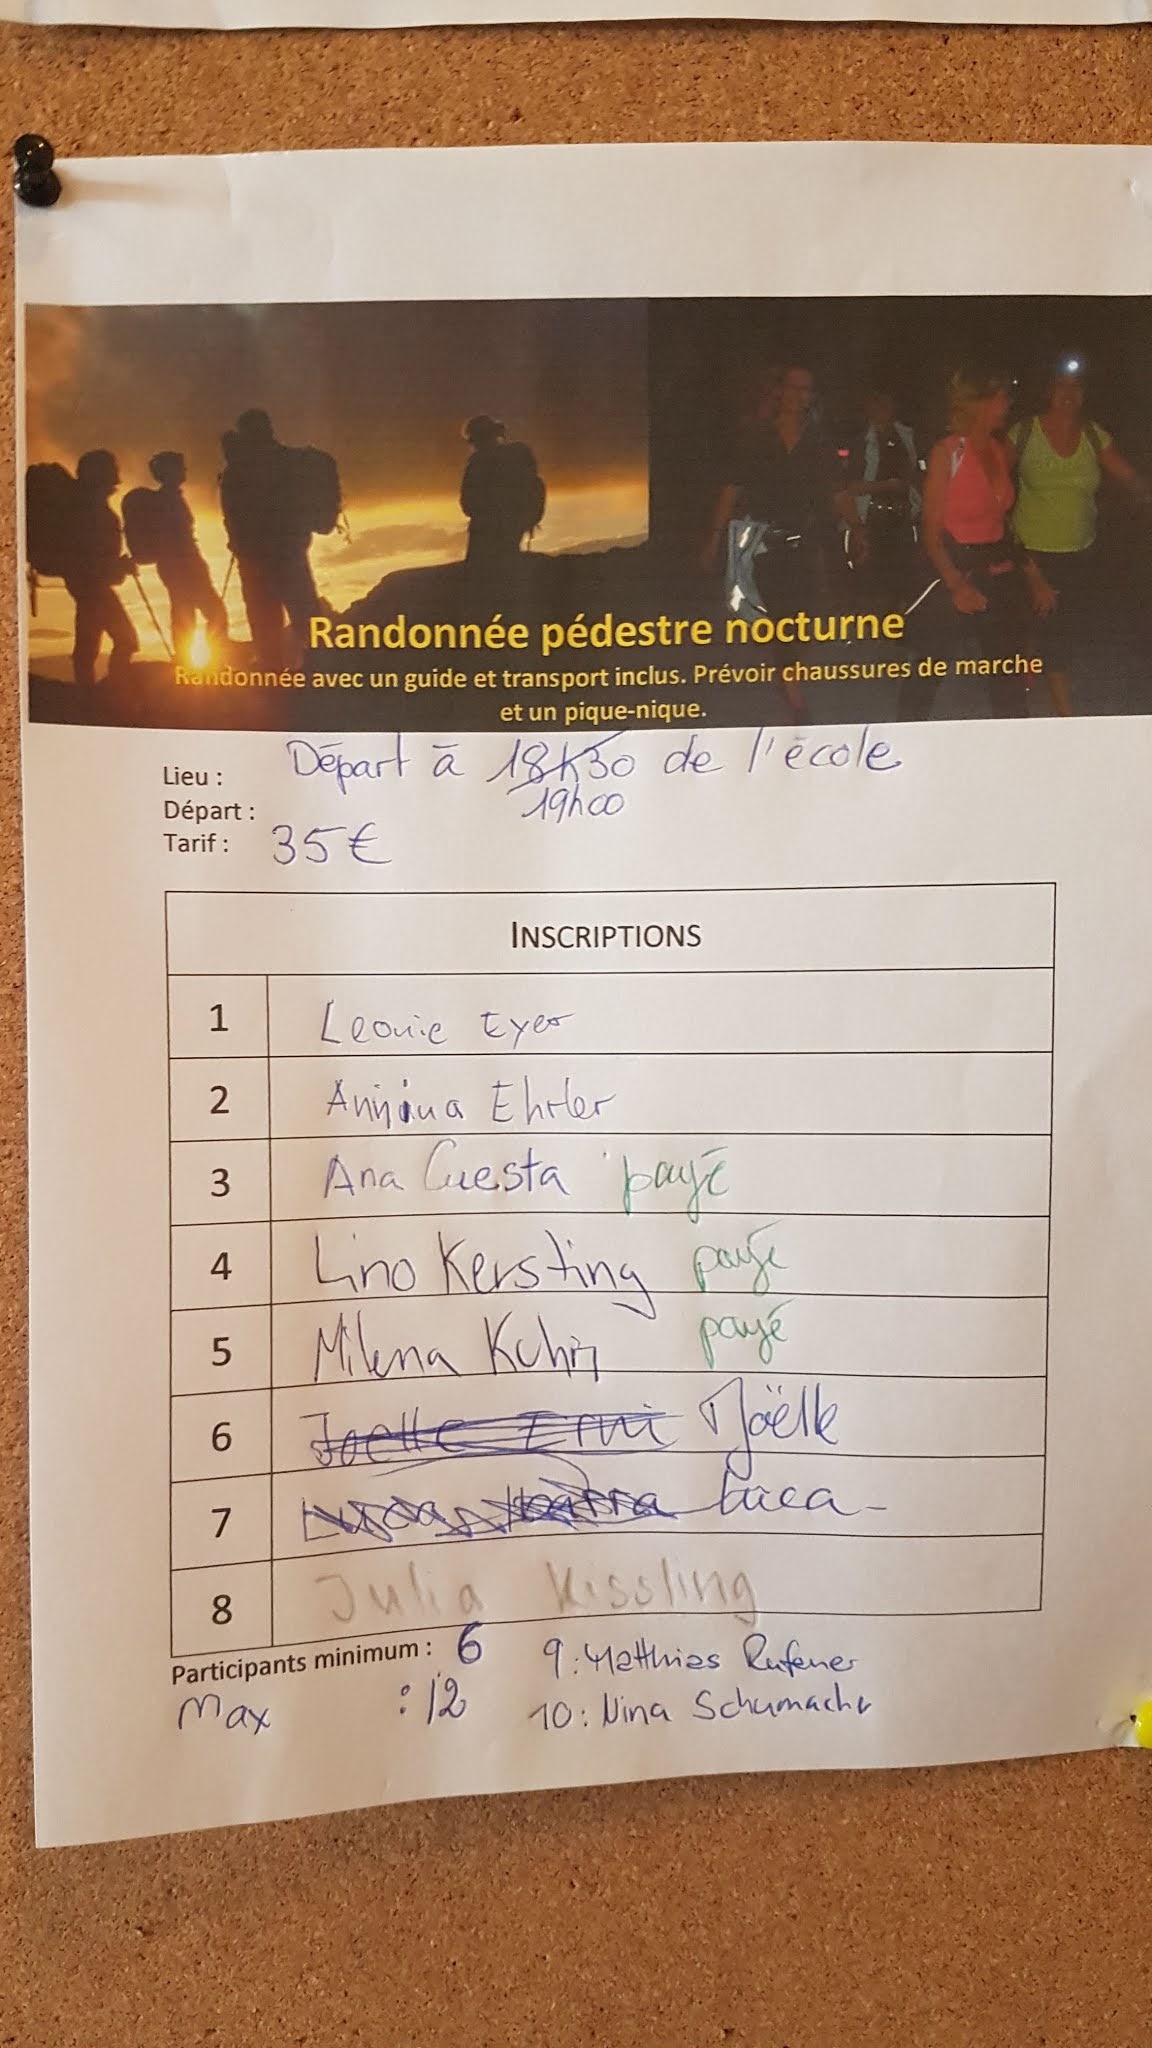 Randonnée pédestre nocturne
Randonnée avec un guide et transport inclus. Prévoir chaussures de marche
et un pique-nique.
Lieu : Départ à 18h30 de l'école
19h00
Départ :
Tarif : 35€
INSCRIPTIONS
1 Leonie Eyer
2 Annina Ehrler
3 Ana Cuesta payé
4 Lino Kersting payé
5 Milena Kuhn payé
6 Joelle Erni Noëlle
7 Lucas Ibarra Luca
8 Julia Kissling
Participants minimum : 6
Max : 12
9 : Matthias Rufener
10 : Nina Schumacher